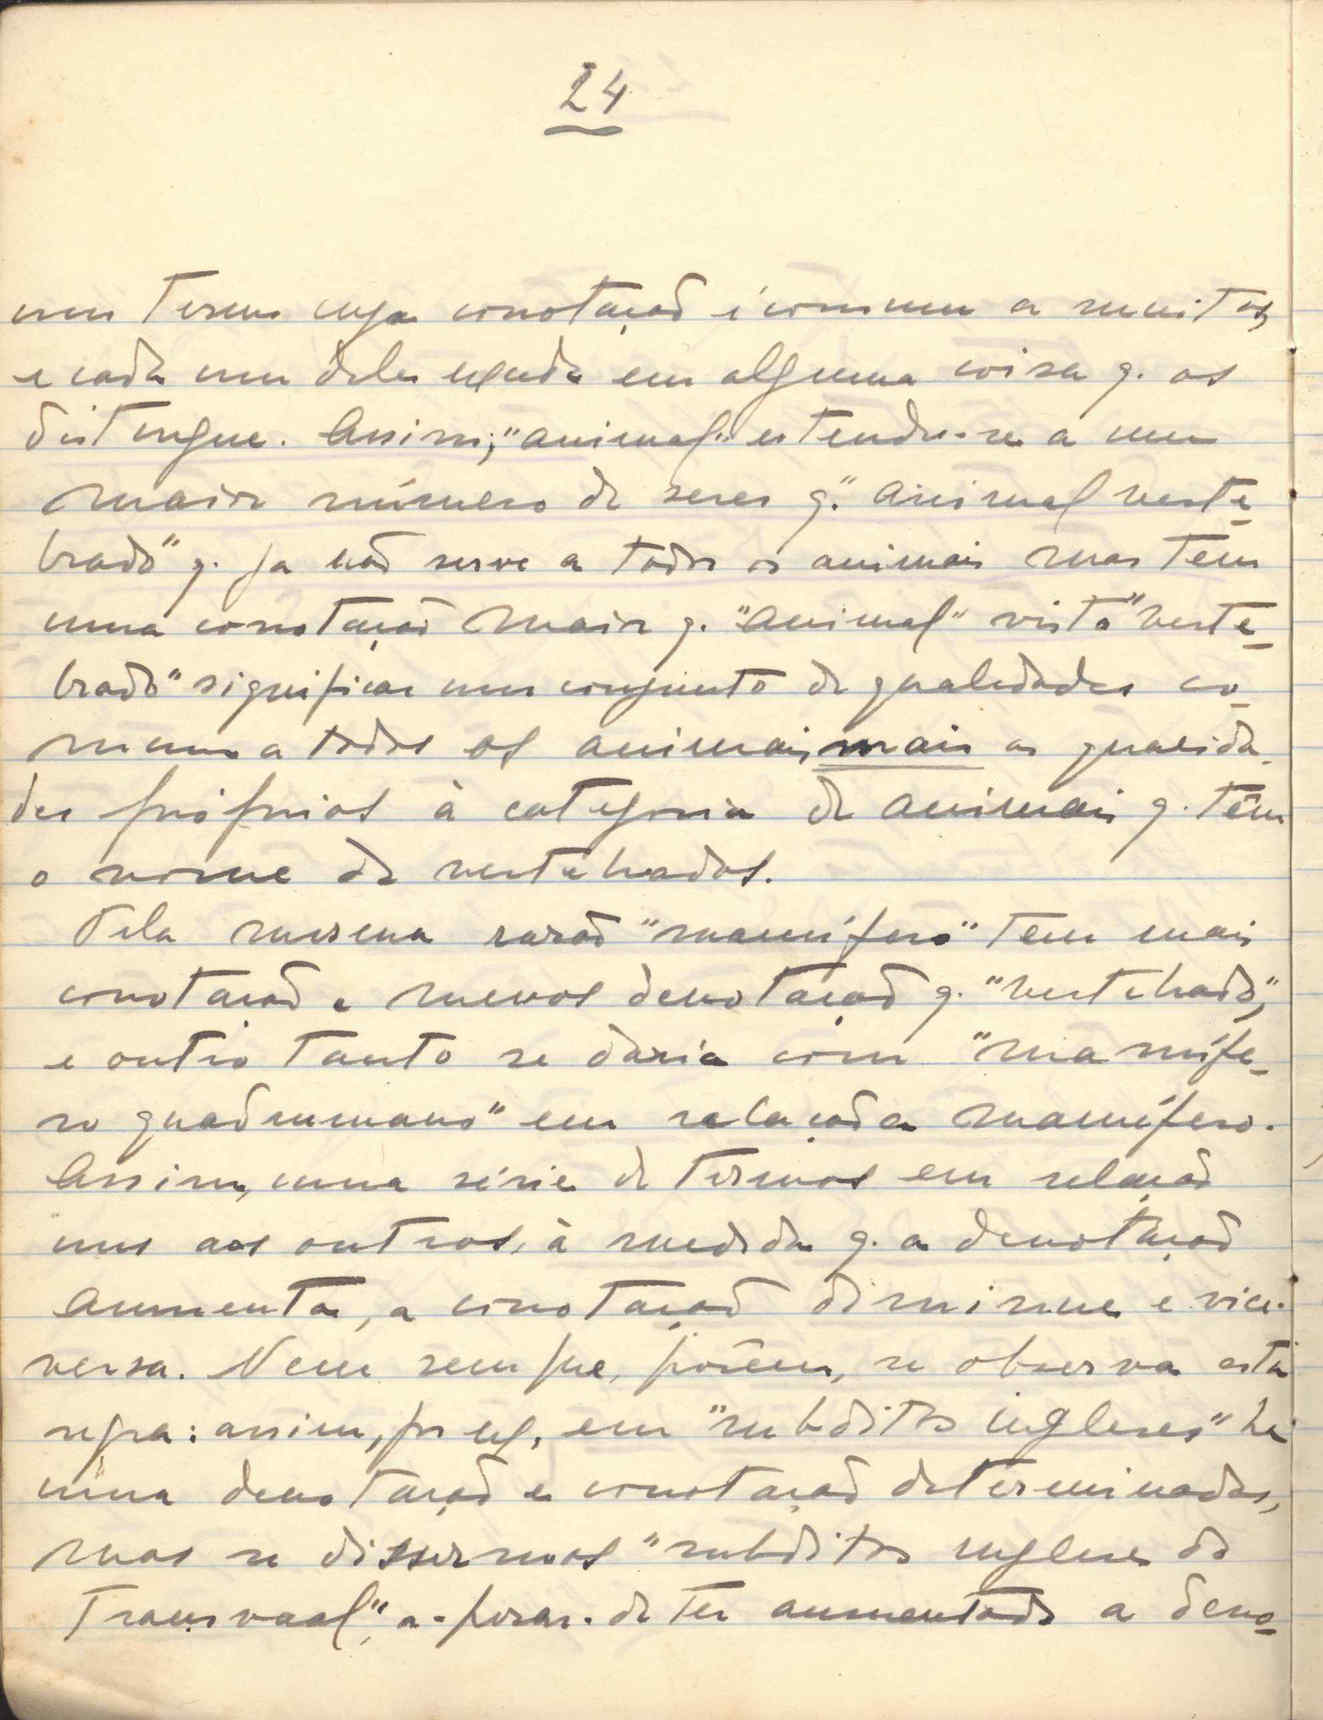 24
um termo cuja conotação é commum a muitos,
e cada um deles exceda em alguma coisa q. os
distingue. Assim, "animal" estende-se a um
maior número de seres q. "animal verte-
brado" q. ja não serve a todos os animais mas tem
uma conotação maior q. "animal" visto "verte-
brado" significar um conjunto de qualidades co-
muns a todos os animais, mais as qualida-
des próprias à categoria de animais q. têm
o nome de vertebrados.
Pela mesma razão "mamífero" tem mais
conotação e menos denotação q. "vertebrado",
e outro tanto se daria com "mamífe-
ro quadrumano" em relação a mamífero.
Assim, numa série de termos em relação
uns aos outros, à medida q. a denotação
aumenta, a conotação diminue e vice-
versa. Nem sempre, porêm, se observa esta
regra: assim, por ex., em "subditos ingleses" há
uma denotação e conotação determinadas,
mas se dissermos "subditos ingleses do
Transvaal", a-pesar-de ter aumentado a deno-